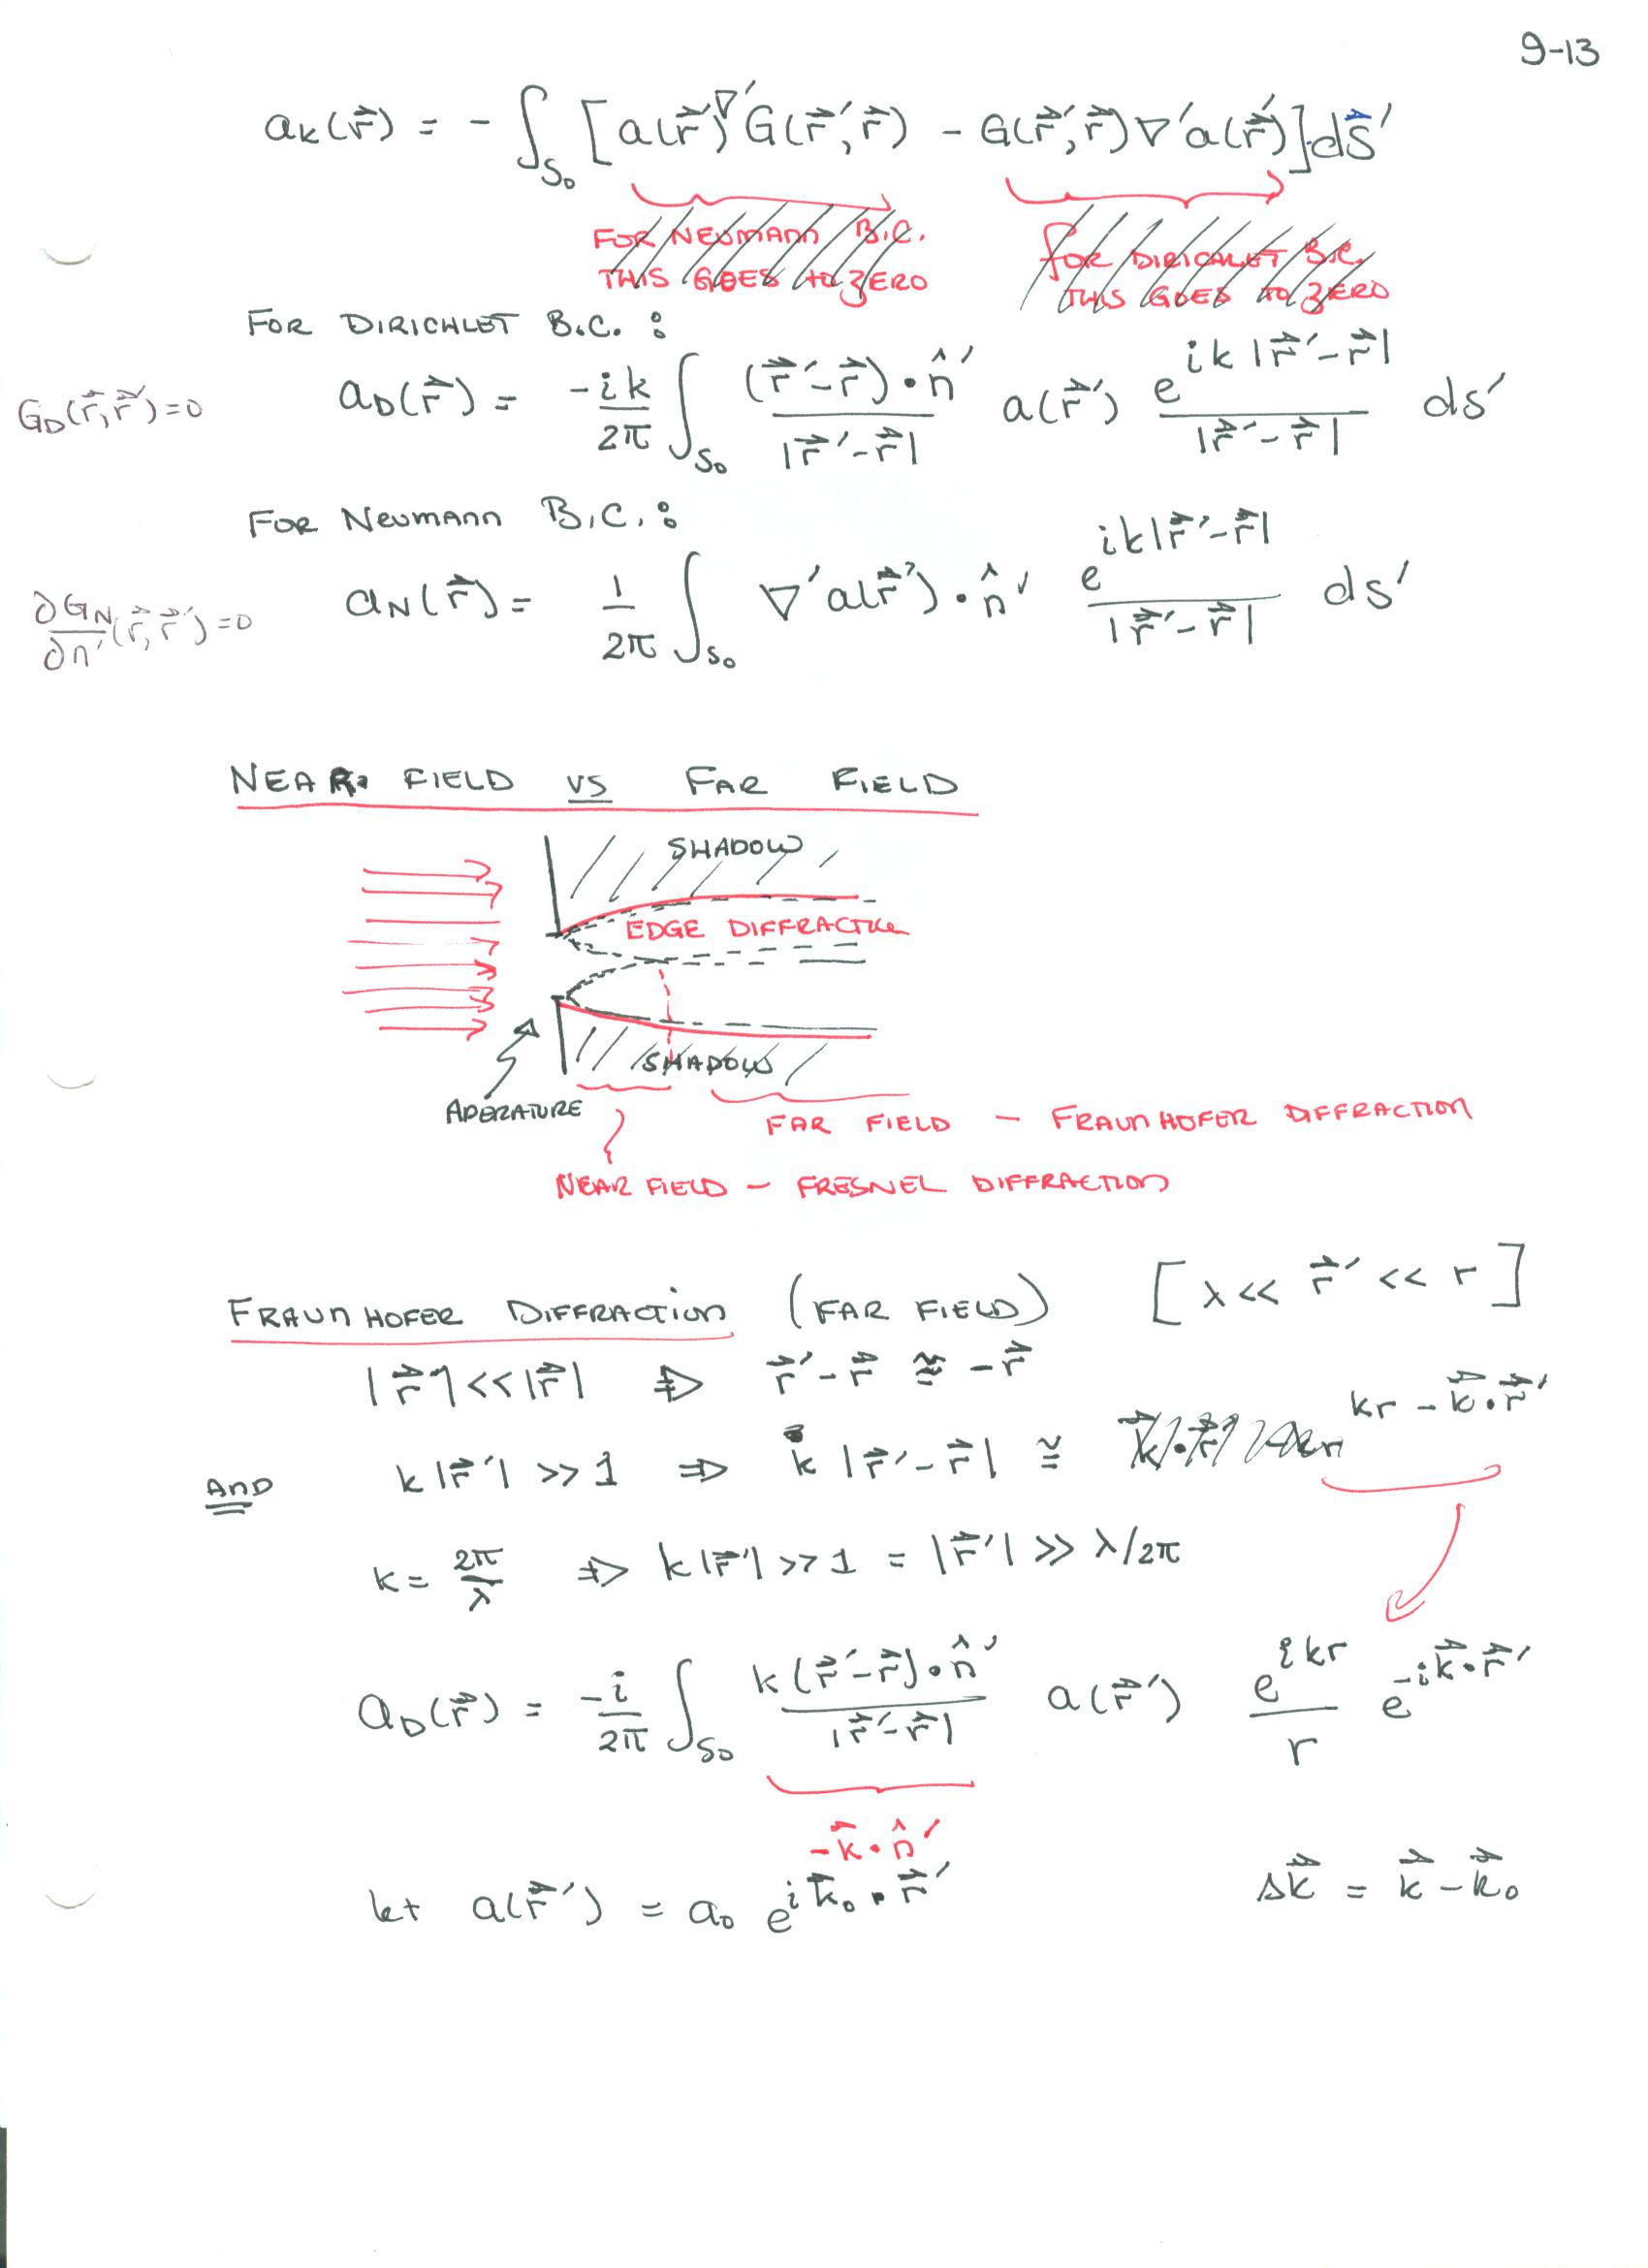 9-13
a_K(r⃗) = - ∫_{S₀} [a(r⃗′)∇′G(r⃗′,r⃗) - G(r⃗′,r⃗)∇′a(r⃗′)]·ds⃗′
FOR NEUMANN B.C. THIS GOES TO ZERO
FOR DIRICHLET B.C. THIS GOES TO ZERO
FOR DIRICHLET B.C.:
G_D(r⃗,r⃗′)=0
a_D(r⃗) = -ik/2π ∫_{S₀} (r⃗′-r⃗)·n̂′/|r⃗′-r⃗| a(r⃗′) e^{ik|r⃗′-r⃗|}/|r⃗′-r⃗| ds′
FOR NEUMANN B.C.:
∂G_N/∂n′(r⃗,r⃗′)=0
a_N(r⃗) = 1/2π ∫_{S₀} ∇′a(r⃗′)·n̂′ e^{ik|r⃗′-r⃗|}/|r⃗′-r⃗| ds′
NEAR FIELD VS FAR FIELD
SHADOW
EDGE DIFFRACTION
SHADOW
APERATURE
FAR FIELD - FRAUNHOFER DIFFRACTION
NEAR FIELD - FRESNEL DIFFRACTION
FRAUNHOFER DIFFRACTION (FAR FIELD) [λ << r⃗′ << r]
|r⃗′|<<|r⃗| ⇒ r⃗′-r⃗ ≅ -r⃗
AND k|r⃗′| >> 1 ⇒ k|r⃗′-r⃗| ≅ kr - k⃗·r⃗′
k = 2π/λ ⇒ k|r⃗′| >> 1 = |r⃗′| >> λ/2π
a_D(r⃗) = -i/2π ∫_{S₀} k(r⃗′-r⃗)·n̂′/|r⃗′-r⃗| a(r⃗′) e^{ikr}/r e^{-ik⃗·r⃗′}
-k⃗·n̂′
let a(r⃗′) = a₀ e^{ik⃗₀·r⃗′} Δk⃗ = k⃗ - k⃗₀